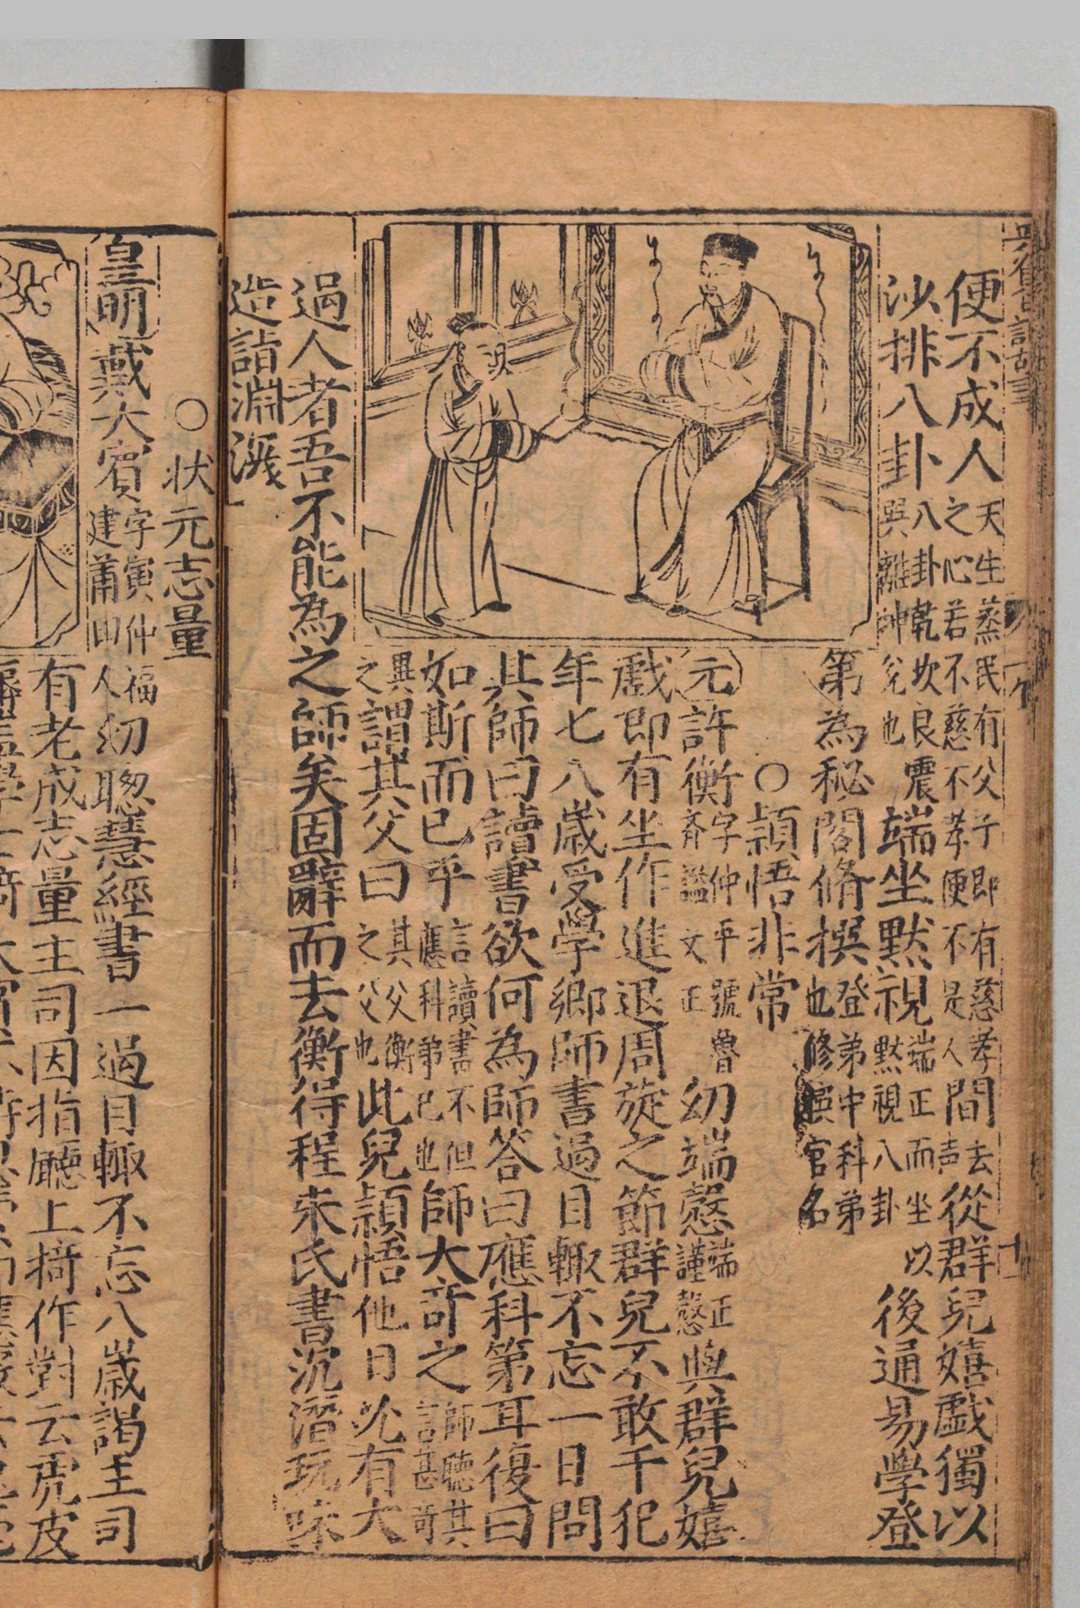 便不成人天生蒸民有父子即有慈孝之心若不慈不孝便不是人間去声從群兒嬉戲獨以
沙排八卦八卦乾坎艮震巽離坤兌也端坐默視端正而坐以默視八卦後通易學登
第為秘閣脩撰登弟中科弟也修撰官名
○頴悟非常
元許衡字仲平號魯齊諡文正幼端慤端正謹慤與群兒嬉
戲即有坐作進退周旋之節群兒不敢干犯
年七八歲受學鄉師書過目輙不忘一日問
其師曰讀書欲何為師答曰應科第耳復曰
如斯而已乎言讀書不但應科弟已也師大奇之師聽其言甚奇
異之謂其父曰其父衡之父也此兒頴悟他日必有大
過人者吾不能為之師矣固辭而去衡得程朱氏書沉潛玩味
造詣淵
○状元志量
皇明戴大賓字寅仲福建莆田人幼聰慧經書一過目輙不忘八歲謁主司
有老成志量主司因指廳上猗作對云虎皮